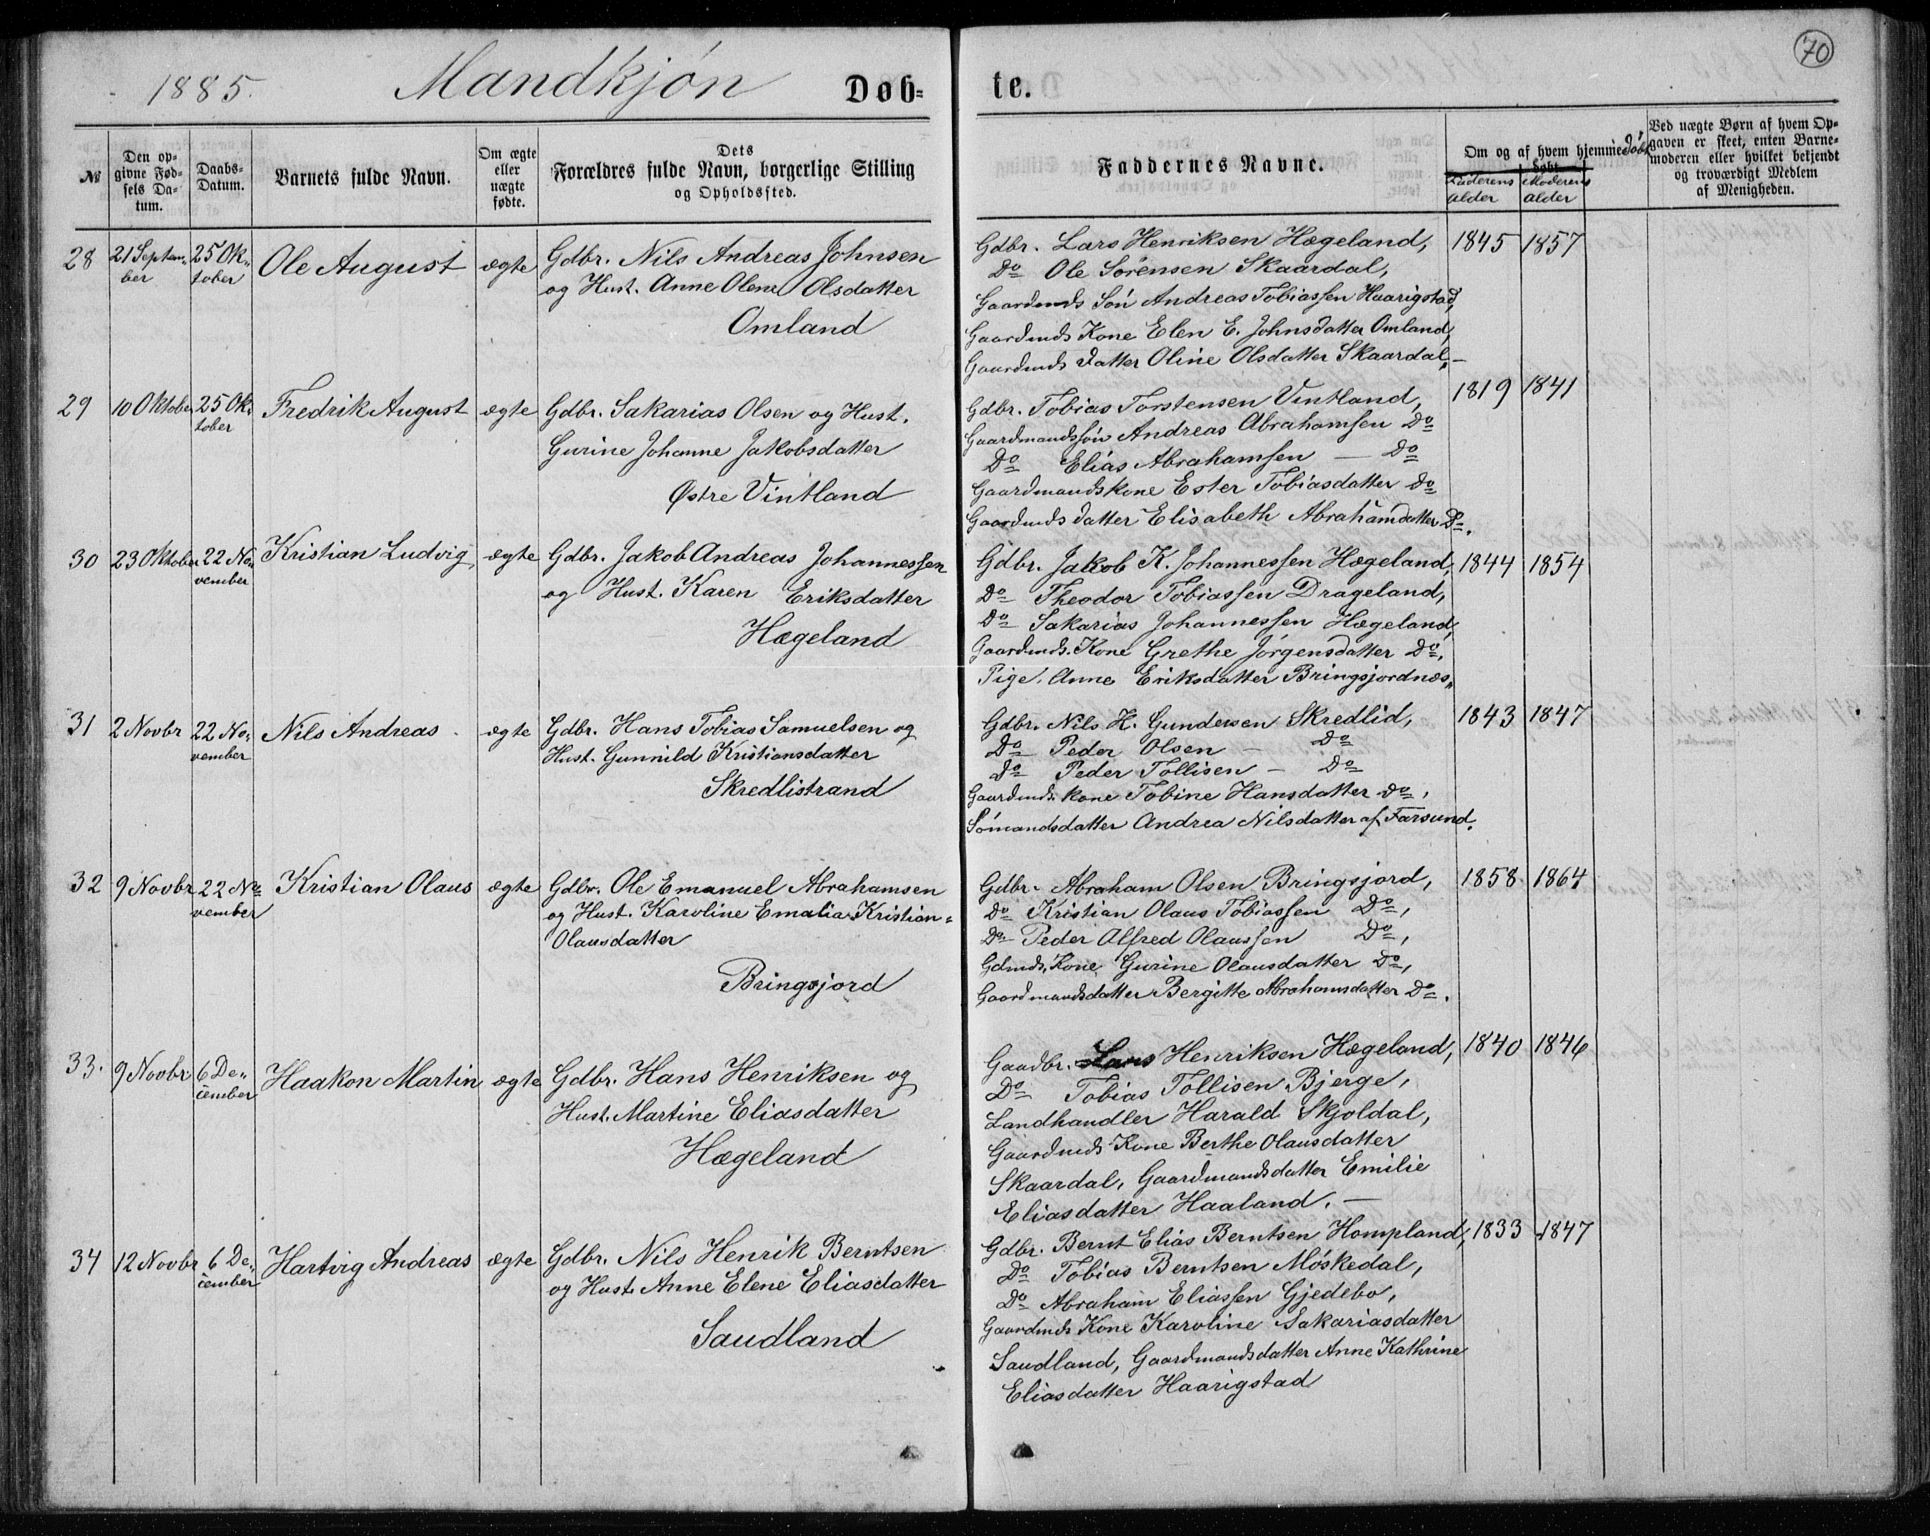 1885. Mandkjøn Døb= te. 70
№
Den opgivne Fødsels Datum.
Daabs-Datum.
Barnets fulde Navn.
Om ægte eller uægte fødte.
Dets Forældres fulde Navn, borgerlige Stilling og Opholdssted.
Faddernes Navne.
Om og af hvem hjemmedøbt
Faderens alder
Moderens alder
Ved uægte Børn af hvem Opgaven er skeet, enten Barnemoderen eller hvilket bekjendt og troværdigt Medlem af Menigheden.
28 21 Septem- 25 Ok- Ole August ægte Gdbr. Nils Andreas Johnsen
ber tober og Hust. Anne Olene Olsdatter
Omland
Gdbr. Lars Henriksen Hægeland, 1845 1857
Do Ole Sørensen Skaardal,
Gaardmds Søn Andreas Tobiassen Haarigstad,
Gaardmds Kone Elen E. Johnsdatter Omland,
Gaardmds Datter Oline Olsdatter Skaardal,-
29 10 Oktober 25 Ok- Fredrik August ægte Gdbr. Sakarias Olsen og Hust.
tober Gurine Johanne Jakobsdatter
Østre Vintland
Gdbr. Tobias Torstensen Vintland, 1819 1841
Gaardmandssøn Andreas Abrahamsen Do
Do Elias Abrahamsen — Do
Gaardmandskone Ester Tobiasdatter Do
Gaardmds datter Elisabeth Abrahamdatter Do.
30 23 Oktober 22 No- Kristian Ludvig ægte Gdbr. Jakob Andreas Johannessen
vember og Hust. Karen Eriksdatter
Hægeland
Gdbr. Jakob K. Johannessen Hægeland, 1844 1854
Do Theodor Tobiassen Drageland,
Do Sakarias Johannessen Hægeland,
Gaardmds. Kone Grethe Jørgensdatter Do,
Pige. Anne Eriksdatter Bringsjordnæs,
31 2 Novbr 22 No- Nils Andreas ægte Gdbr. Hans Tobias Samuelsen og
vember Hust. Gunnild Kristiansdatter
Skredlistrand
Gdbr. Nils H. Gundersen Skredlid, 1843 1847
Do Peder Olsen — Do
Do Peder Tollisen — Do
Gaardmds. kone Tobine Hansdatter Do,
Sømandsdatter Andrea Nilsdatter af Farsund.
32 9 Novbr 22 No- Kristian Olaus ægte Gdbr. Ole Emanuel Abrahamsen
vember og Hust. Karoline Emalia Kristian=
Olausdatter
Bringsjord
Gdbr. Abraham Olsen Bringsjord, 1858 1864
Do Kristian Olaus Tobiassen Do,
Do Peder Alfred Olaussen Do,
Gdmds. Kone Gurine Olausdatter Do,
Gaardmandsdatter Bergitte Abrahamsdatter Do.
33. 9 Novbr 6 De- Haakon Martin ægte Gdbr. Hans Henriksen og
cember Hust. Martine Eliasdatter
Hægeland
Gaadbr. Lars Henriksen Hægeland, 1840 1846
Do Tobias Tollisen Bjerge,
Landhandler Harald Skjoldal,
Gaardmds Kone Berthe Olausdatter
Skaardal, Gaardmandsdatter Emilie
Eliasdatter Haaland. —
34 12 Novbr 6 De- Hartvig Andreas ægte Gdbr. Nils Henrik Berntsen
cember og Hust. Anne Elene Eliasdatter
Saudland
Gdbr. Bernt Elias Berntsen Hompland, 1833 1847
Do Tobias Berntsen Møskedal,
Do Abraham Eliassen Gjedebo,
Gaardmds Kone Karoline Sakariasdatter
Saudland, Gaardmandsdatter Anne Kathrine
Eliasdatter Haarigstad